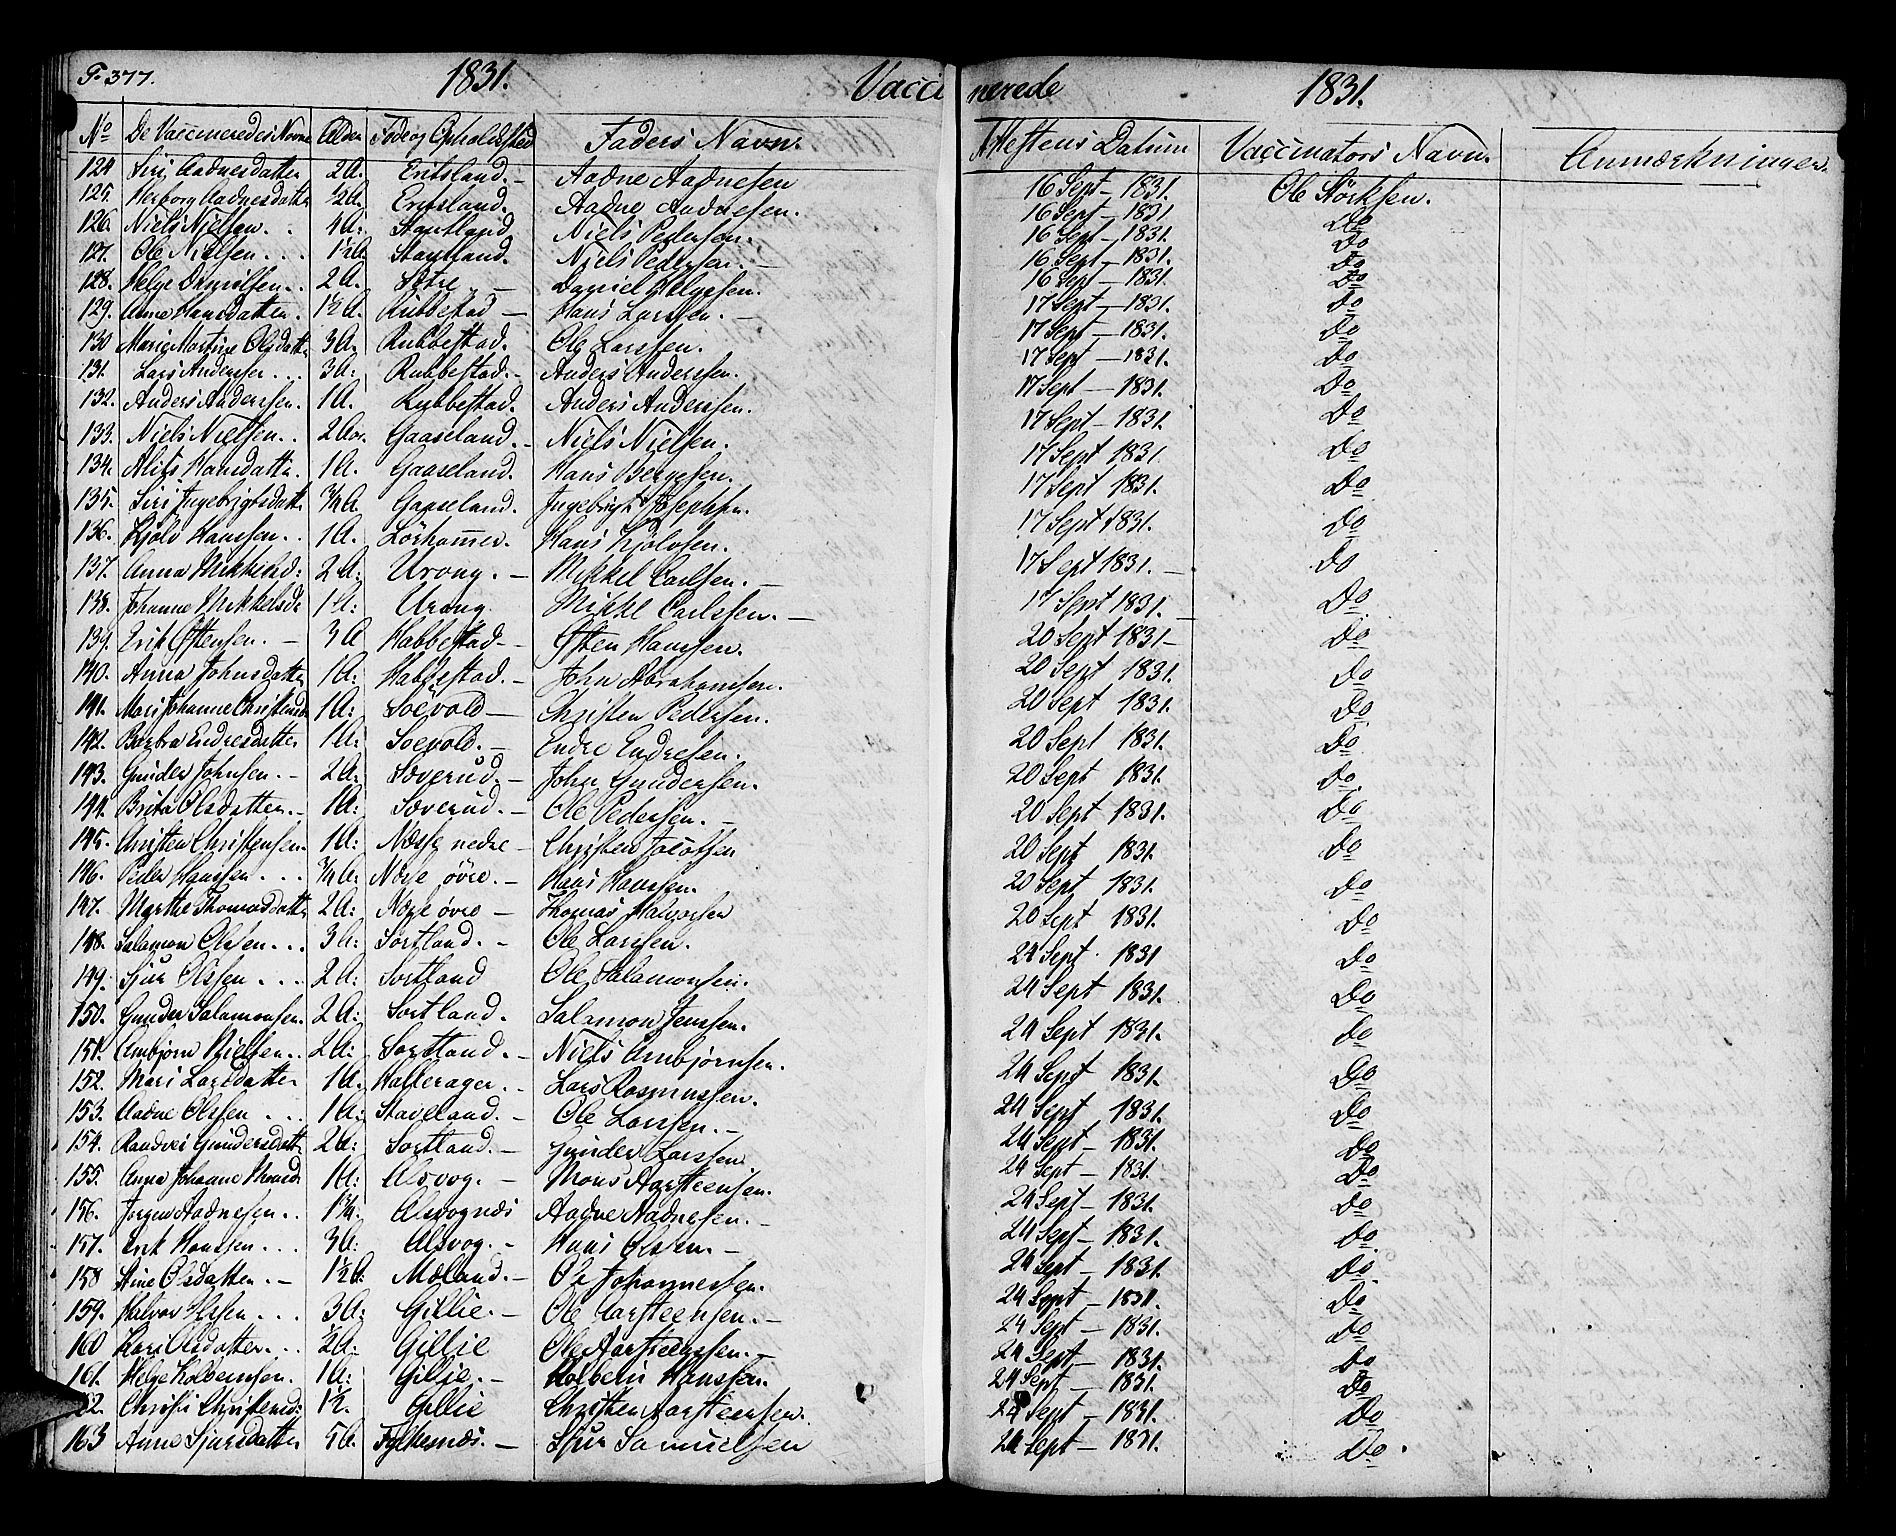 F. 377. 1831. Vaccinerede 1831.
No De Vaccineredes Navne Alder Føde og Opholdsted Faders Navn. Attestens Datum Vaccinators Navn. Anmærkninger.
124 Siri Aadnesdatter 2 A. Eritsland. - Aadne Aadnesen 16 Sept - 1831. Ole Störksen.
125. Herborg Aadnesdatter ½ A. Eritsland. Aadne Aadnesen. 16 Sept - 1831 Do
126. Niels Nielsen . . 4 A: Stautland Niels Pedersen. 16 Sept - 1831. Do
127. Ole Nielsen . . . 1½ A. Stautland. Niels Pedersen. - 16 Sept - 1831. Do
128. Helge Danielsen . . 2 A. Sætre - Daniel Helgesen. 16 Sept - 1831. Do
129. Anne Hansdatter . 1½ A. Rubbestad - Hans Larssen. - 17 Sept - 1831. Do
130 Marie Martine Olsdatter 3 A. Rubbestad. Ole Larssen. 17 Sept - 1831. Do
131. Lars Anderssen . . . 3 A: Rubbestad. - Anders Anderssen. 17 Sept - 1831. Do
132. Anders Anderssen. 1 A. Rubbestad. Anders Anderssen. 17 Sept - 1831. Do
133. Niels Nielsen. . 2 Aar. Gaaseland. - Niels Nielsen. 17 Sept - 1831. Do
134. Alits Hansdatter. 1 A. Gaaseland. Hans Bergesen. 17 Sept 1831. Do
135. Siri Ingebrigtsdatter ¾ A. Gaaseland. Ingebrigt Josephsen. 17 Sept 1831. Do
136. Kjöld Hanssen . . 1 A. Lörhammer. Hans Kjöldsen. 17 Sept 1831. Do
137. Anna Mikkelsd: 2 A: Urong. - Mikkel Carlsen. - 17 Sept 1831. - Do
138. Johanne Mikkelsdr 1 A: Urong. Mikkel Carlssen. - 17 Sept 1831. Do
139. Erik Ostensen. - 3 A Habbestad - Osten Hanssen. 20 Sept 1831 - Do
140. Anna Johnsdatter 1 A: Habbestad. - John Abrahamsen. 20 Sept 1831. Do
141. Mari Johanne Christensd 1 A: Soevold - Christen Pedersen. 20 Sept 1831. Do
142. Barbra Endresdatter 1 A: Soevold. - Endre Endresen. 20 Sept 1831. Do
143. Gunder Johnsen. - 2 A: Sæverud. - John Gundersen. 20 Sept 1831. Do.
144. Brita Olsdatter. - 1 A: Sæverud. - Ole Pedersen. - 20 Sept 1831. Do
145. Christen Christensen. 1 A: Næsse nedre - Christen Jacobsen 20 Sept 1831. Do
146. Peder Hanssen . . . ¾ A: Næsse övre. - Hans Hanssen. 20 Sept 1831. Do
147. Marthe Thomasdatter 2 A: Næsse övre - Thomas Halvorsen 20 Sept 1831. Do
148. Salamon Olssen . . . 3 A: Sortland. - Ole Larssen. 24 Sept. 1831 Do
149. Sjur Olssen . . . 2 A: Sortland Ole Salamonsen. 24 Sept 1831. Do
150. Gunder Salamonsen. 2 A: Sortland. Salamon Jenssen. 24 Sept 1831. Do
151. Ambjorn Nielsen . . 2 A: Sortland. - Niels Ambjørnsen. 24 Sept 1831. Do
152. Mari Larsdatter 1 A. Hallerager. - Lars Rasmussen. 24 Sept 1831. Do
153. Aadne Olssen . . . 1 A: Staveland. - Ole Larssen. - 24 Sept - 1831. Do
154. Randvei Gundersdatter 2 A: Sortland. - Gunder Larssen 24 Sept - 1831. Do
155. Anna Johanne Monsd 1 A: Alsvog. - Mons Aarsteensen. 24 Sept - 1831. Do
156. Jorgen Aadnesen . . 1¾. Alsvognæs Aadne Aadnesen. - 24 Sept - 1831. Do
157. Erik Hanssen . . . 3 A: Alsvog. - Hans Olssen. - 24 Sept - 1831. Do
158 Stine Olsdatter. - 1½ A: Mæland. - Ole Johannessen. 24 Sept - 1831. Do.
159. Halvor Olssen . . . 3 A: Gillie. - Ole Aarsteensen. - 24 Sept - 1831. Do
160 Kari Olsdatter. . . ½ A: Gillie Ole Aarsteensen. - 24 Sept - 1831. Do
161. Helge Kolbeinsen. 1 A: Gilje. - Kolbein Hanssen. 24 Sept - 1831. Do
162. Christi Christensd: 1½. Gillie Christen Aarsteensen. 24 Sept - 1831. Do
163 Anne Sjursdatter 5 A. Fylkesnæs. - Sjur Samuelsen 24 Sept - 1831. Do.